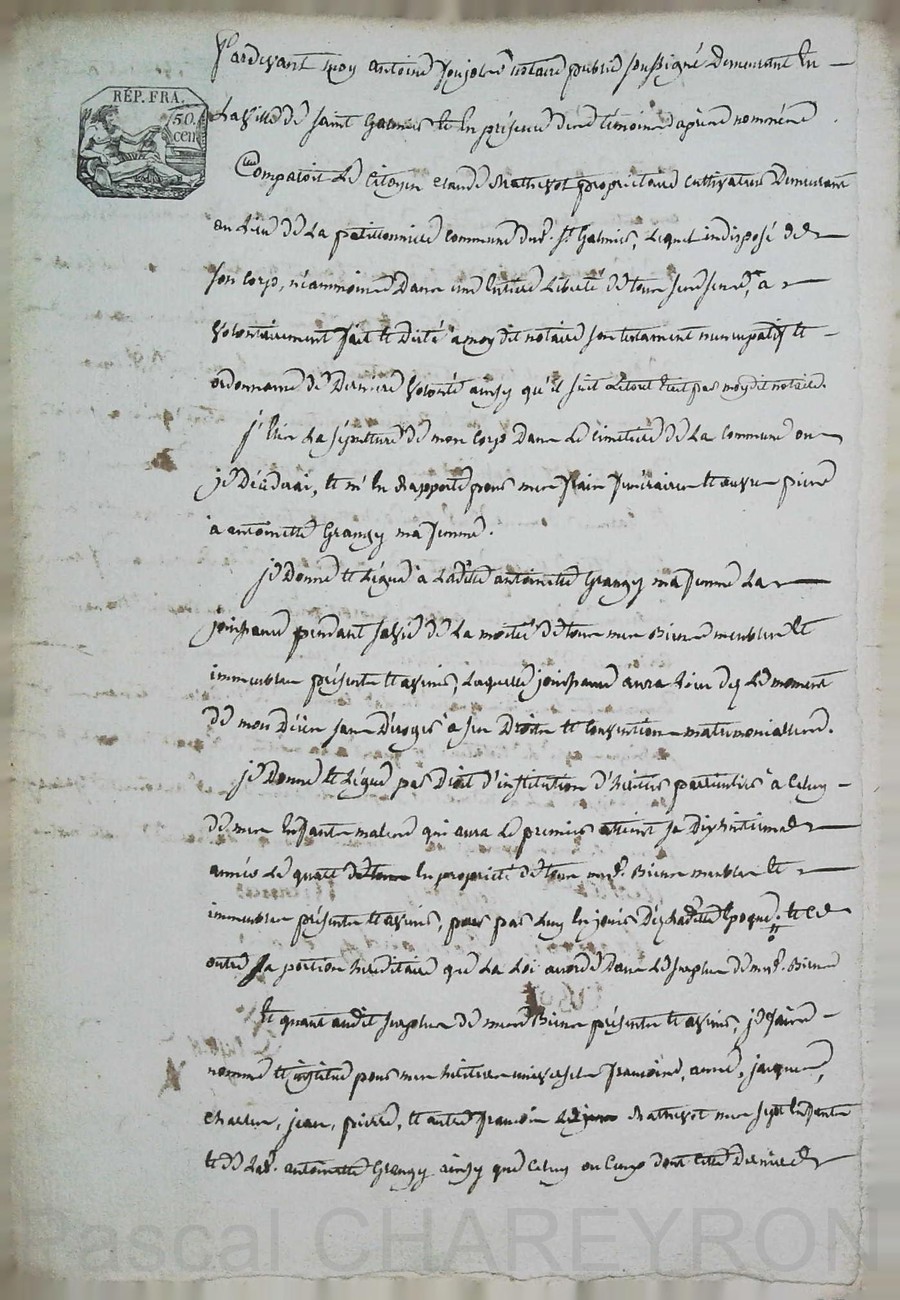 RÉP. FRA.
50.
cen
Pardevant moy antoine notaire public soussigné Demeurant En
La ville de saint Galmier Et En présence des témoins d'après nommés
Comparoit Le Citoyen claude Mathevot propriétaire cultivateur Demeurant
au Lieu de La commune dud. St Galmier, Lequel indisposé de
son corps, néanmoins Dans une Entière Liberté de tous ses sens, a
volontairement fait Et dicté à moy dit notaire son testament nuncupatif Et
ordonnance de Dernière volonté ainsy qu'il suit Le tout Ecrit par moy dit notaire.
j'Elis La sépulture de mon corps Dans Le cimetière de La commune ou
je Décéderai, Et m'En Rapporte pour mes frais funéraires Et œuvres pies
à antoinette Grangy ma femme.
je Donne Et Lègue à Ladite antoinette Grangy ma femme La
jouissance pendant sa vie de La moitié de tous mes Biens meubles Et
immeubles présents Et avenir, Laquelle jouissance aura Lieu dez Le moment
de mon Décès sans Déroger à ses Droits Et Conventions matrimoniales.
je Donne Et Lègue par Droit d'institution d'héritier particulier à Celuy
de mes Enfants males qui aura Le premier atteint sa Dixhuitieme
année Le quart En propriété de tous mesd. Biens meubles Et
immeubles présents Et avenir, pour par Luy En jouir Dez Ladite Epoque. Et Ce
outre sa portion héréditaire que La Loi accorde Dans Le surplus de mesd. Biens
Et quant audit surplus de mes Biens présents Et avenir, je fais
nomme Et institue pour mes héritiers universels françoise, anne, jacques,
charles, jean, pierre, Et autre françoise Mathevot mes sept Enfants
Et de Lad. antoinette Grangy ainsy que Celuy ou Ceux dont cette Dernière
Pascal CHAREYRON